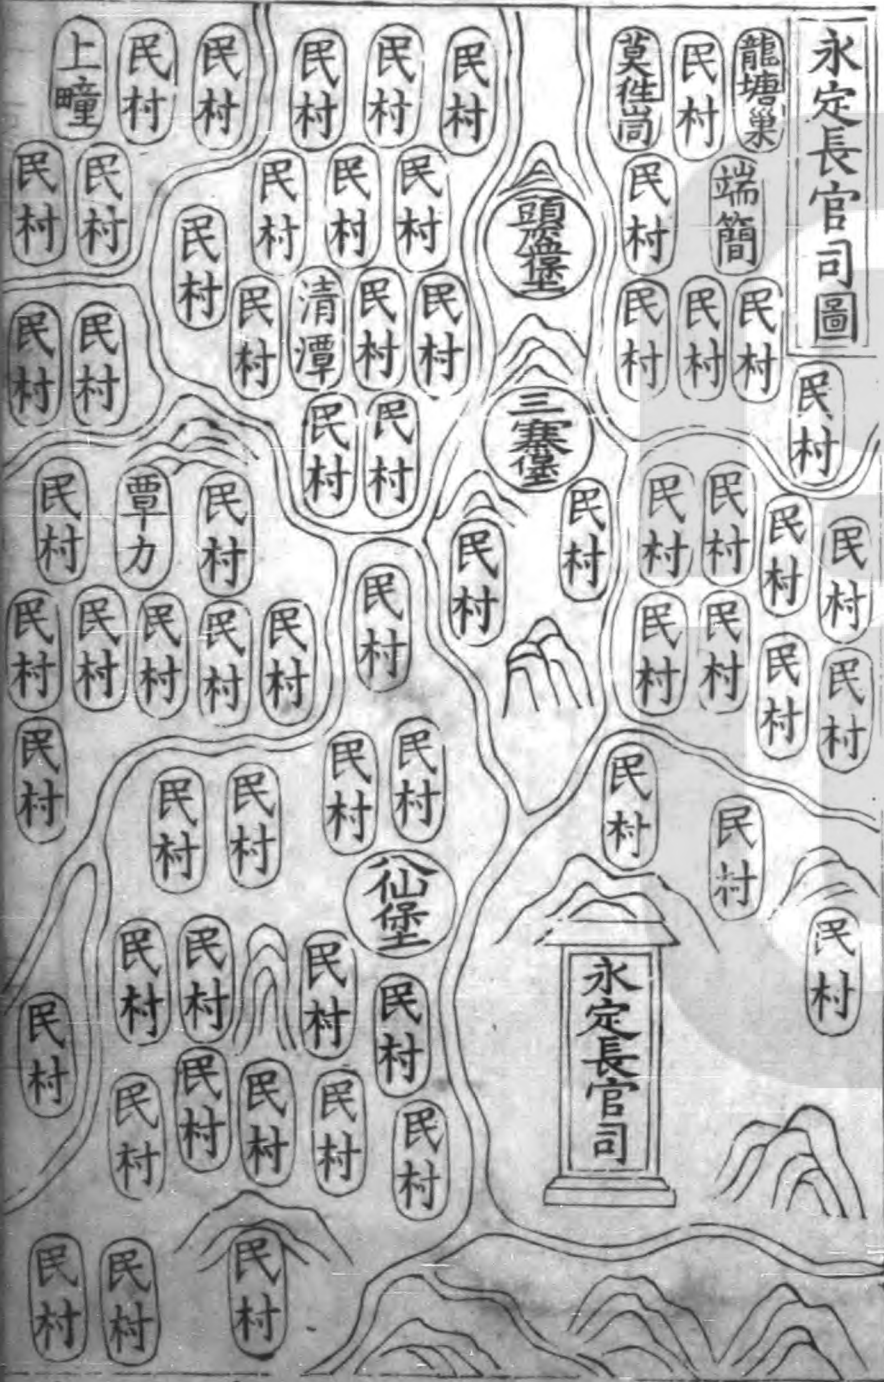 永定長官司圖
龍塘巢
民村
莫往崗
端簡
民村
民村
民村
民村
民村
頭盔堡
三寨堡
民村
民村
民村
民村
民村
民村
民村
民村
民村
民村
民村
民村
民村
民村
永定長官司
民村
民村
民村
民村
民村
民村
民村
民村
清潭
民村
民村
民村
民村
民村
民村
民村
上疃
民村
民村
民村
民村
民村
覃力
民村
民村
民村
民村
民村
民村
民村
民村
民村
民村
民村
民村
八仙堡
民村
民村
民村
民村
民村
民村
民村
民村
民村
民村
民村
民村
民村